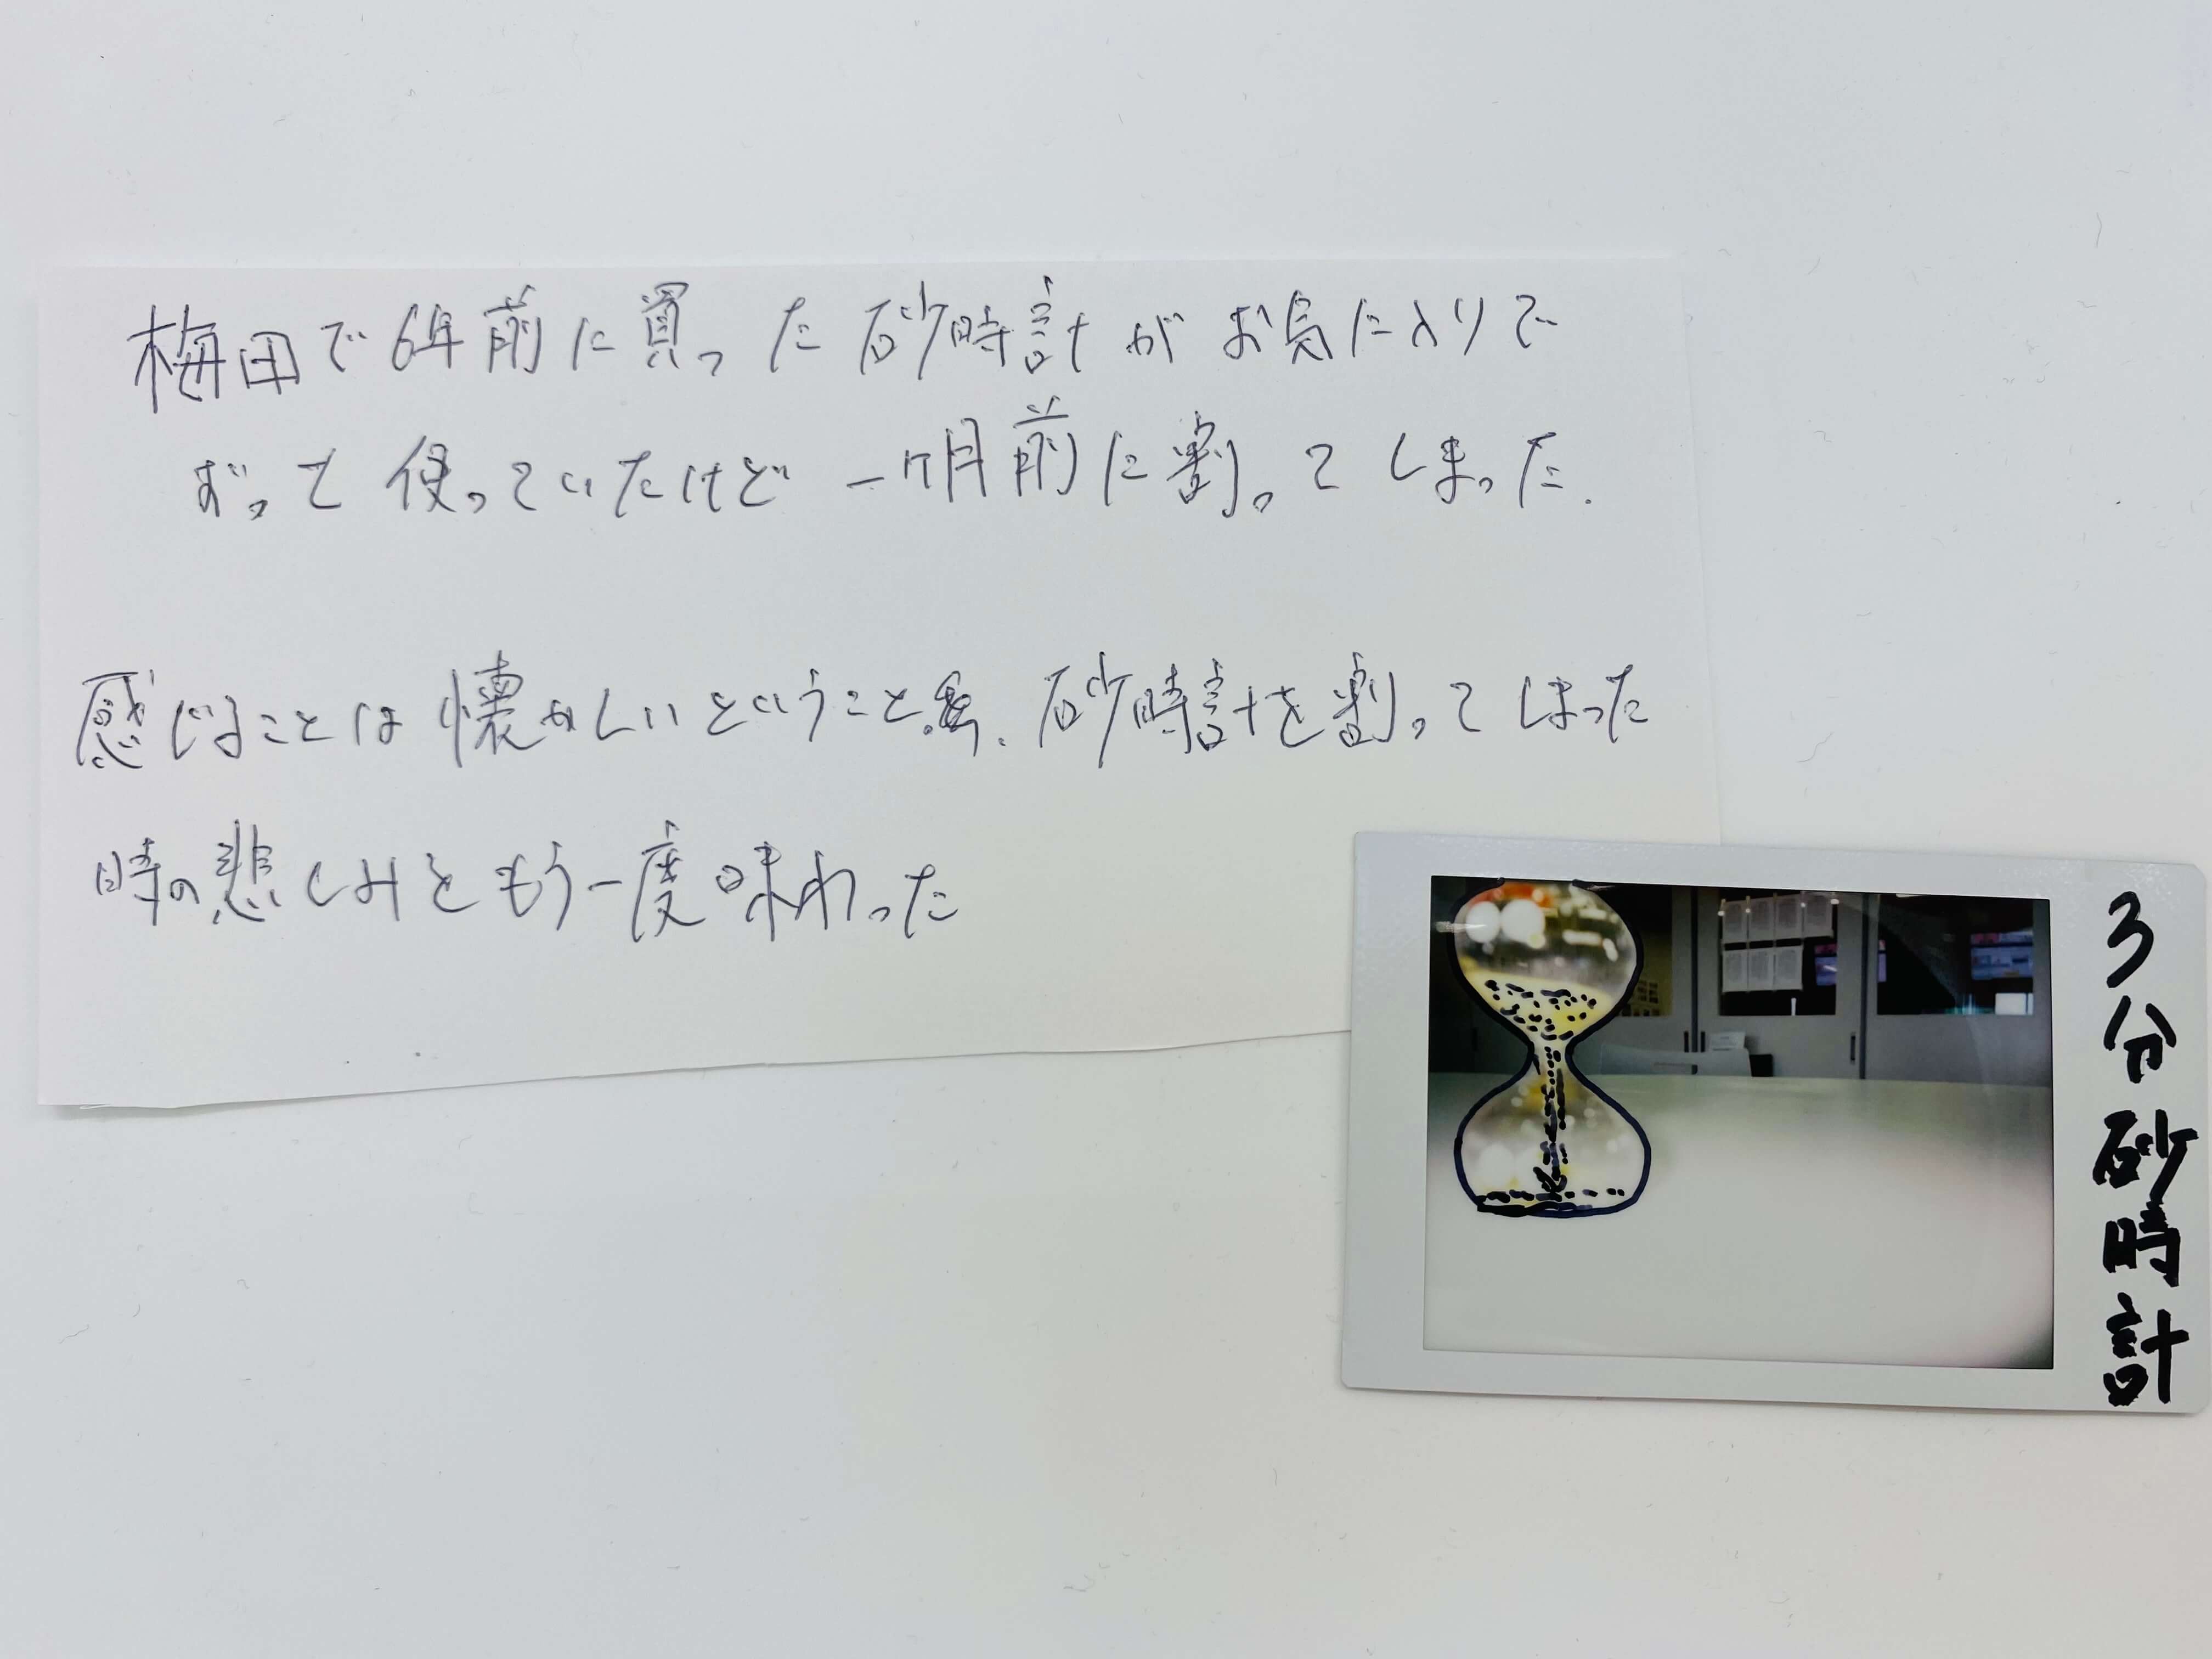 梅田で6年前に買った砂時計がお気に入りで
ずって使っていたけど一ヶ月前に割ってしまった.
感じることは懐かしいということ. 砂時計を割ってしまった
時の悲しみともう一度味わった
3分砂時計